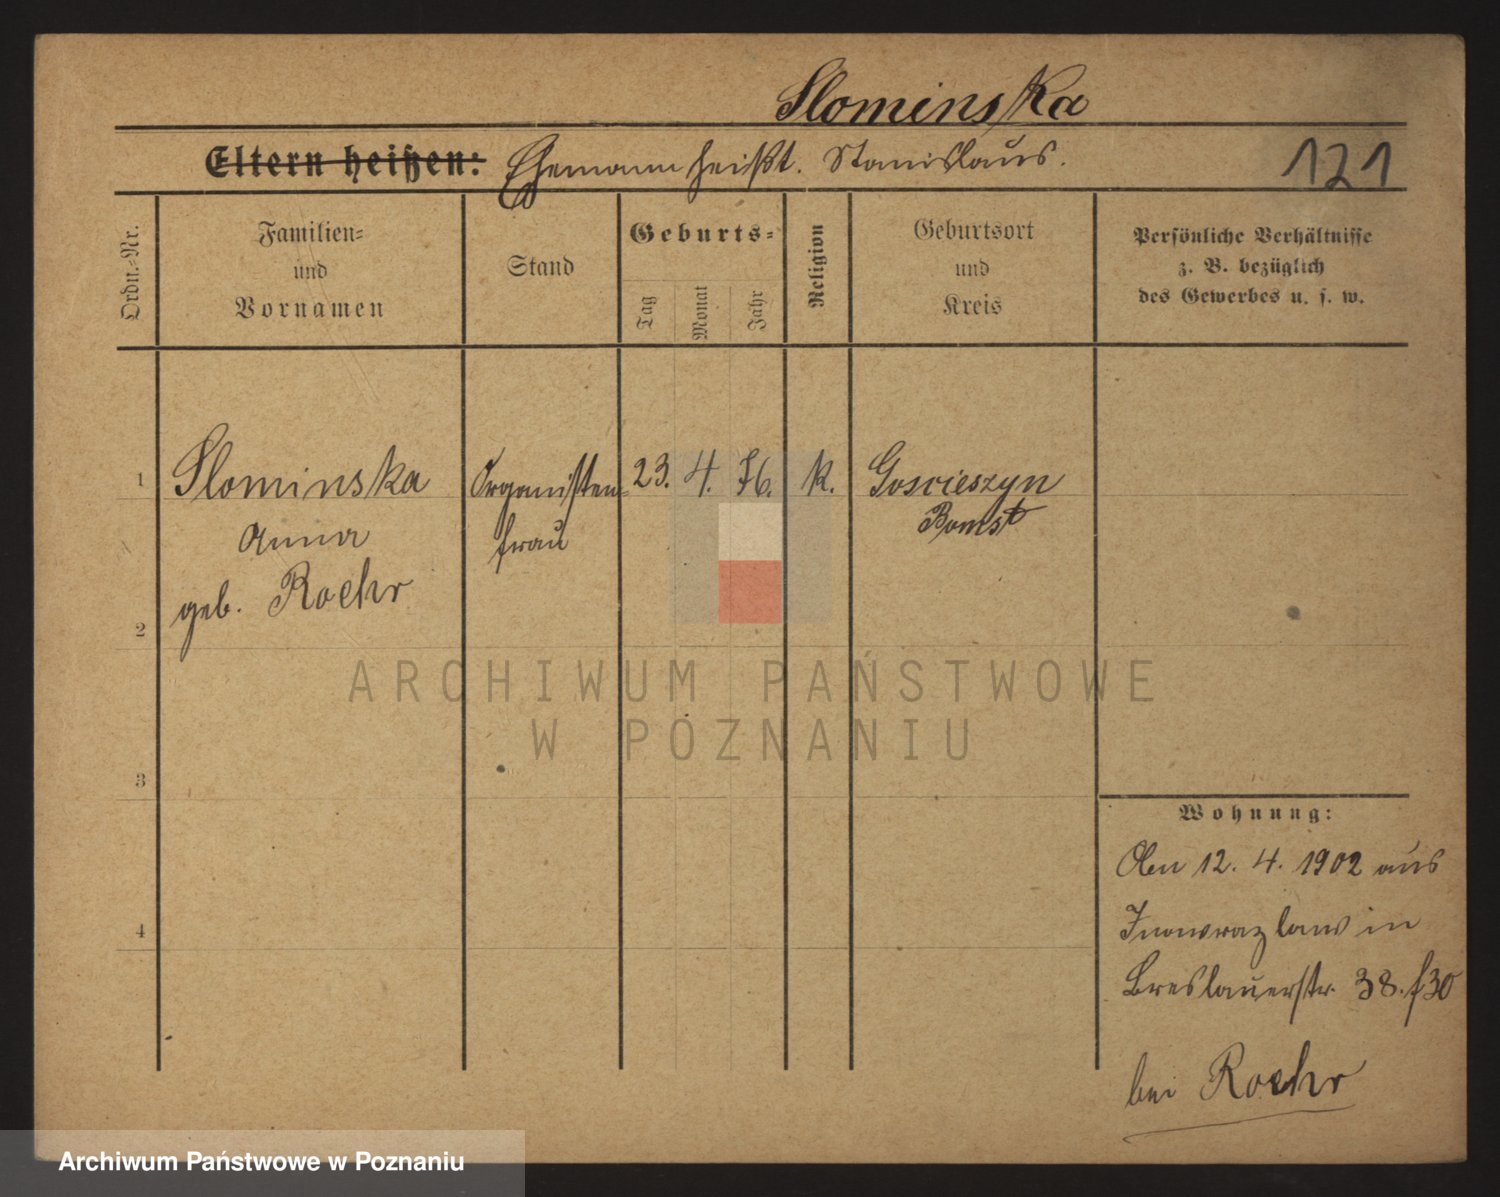 Slominska
Eltern heißen: Ehemann heißt. Stanislaus.
121
Ordn.-Nr.
Familien-
und
Vornamen
Stand
Geburts-
Tag
Monat
Jahr
Religion
Geburtsort
und
Kreis
Persönliche Verhältnisse
z. B. bezüglich
des Gewerbes u. s. w.
1 Slominska Organisten- 23. 4. 76. k. Goscieszyn
Anna frau Bomst
geb. Roehr
2
ARCHIWUM PAŃSTWOWE
W POZNANIU
3
Wohnung:
Den 12. 4. 1902 aus
Inowrazlaw in
Breslauerstr. 38. f30
4
bei Roehr
Archiwum Państwowe w Poznaniu